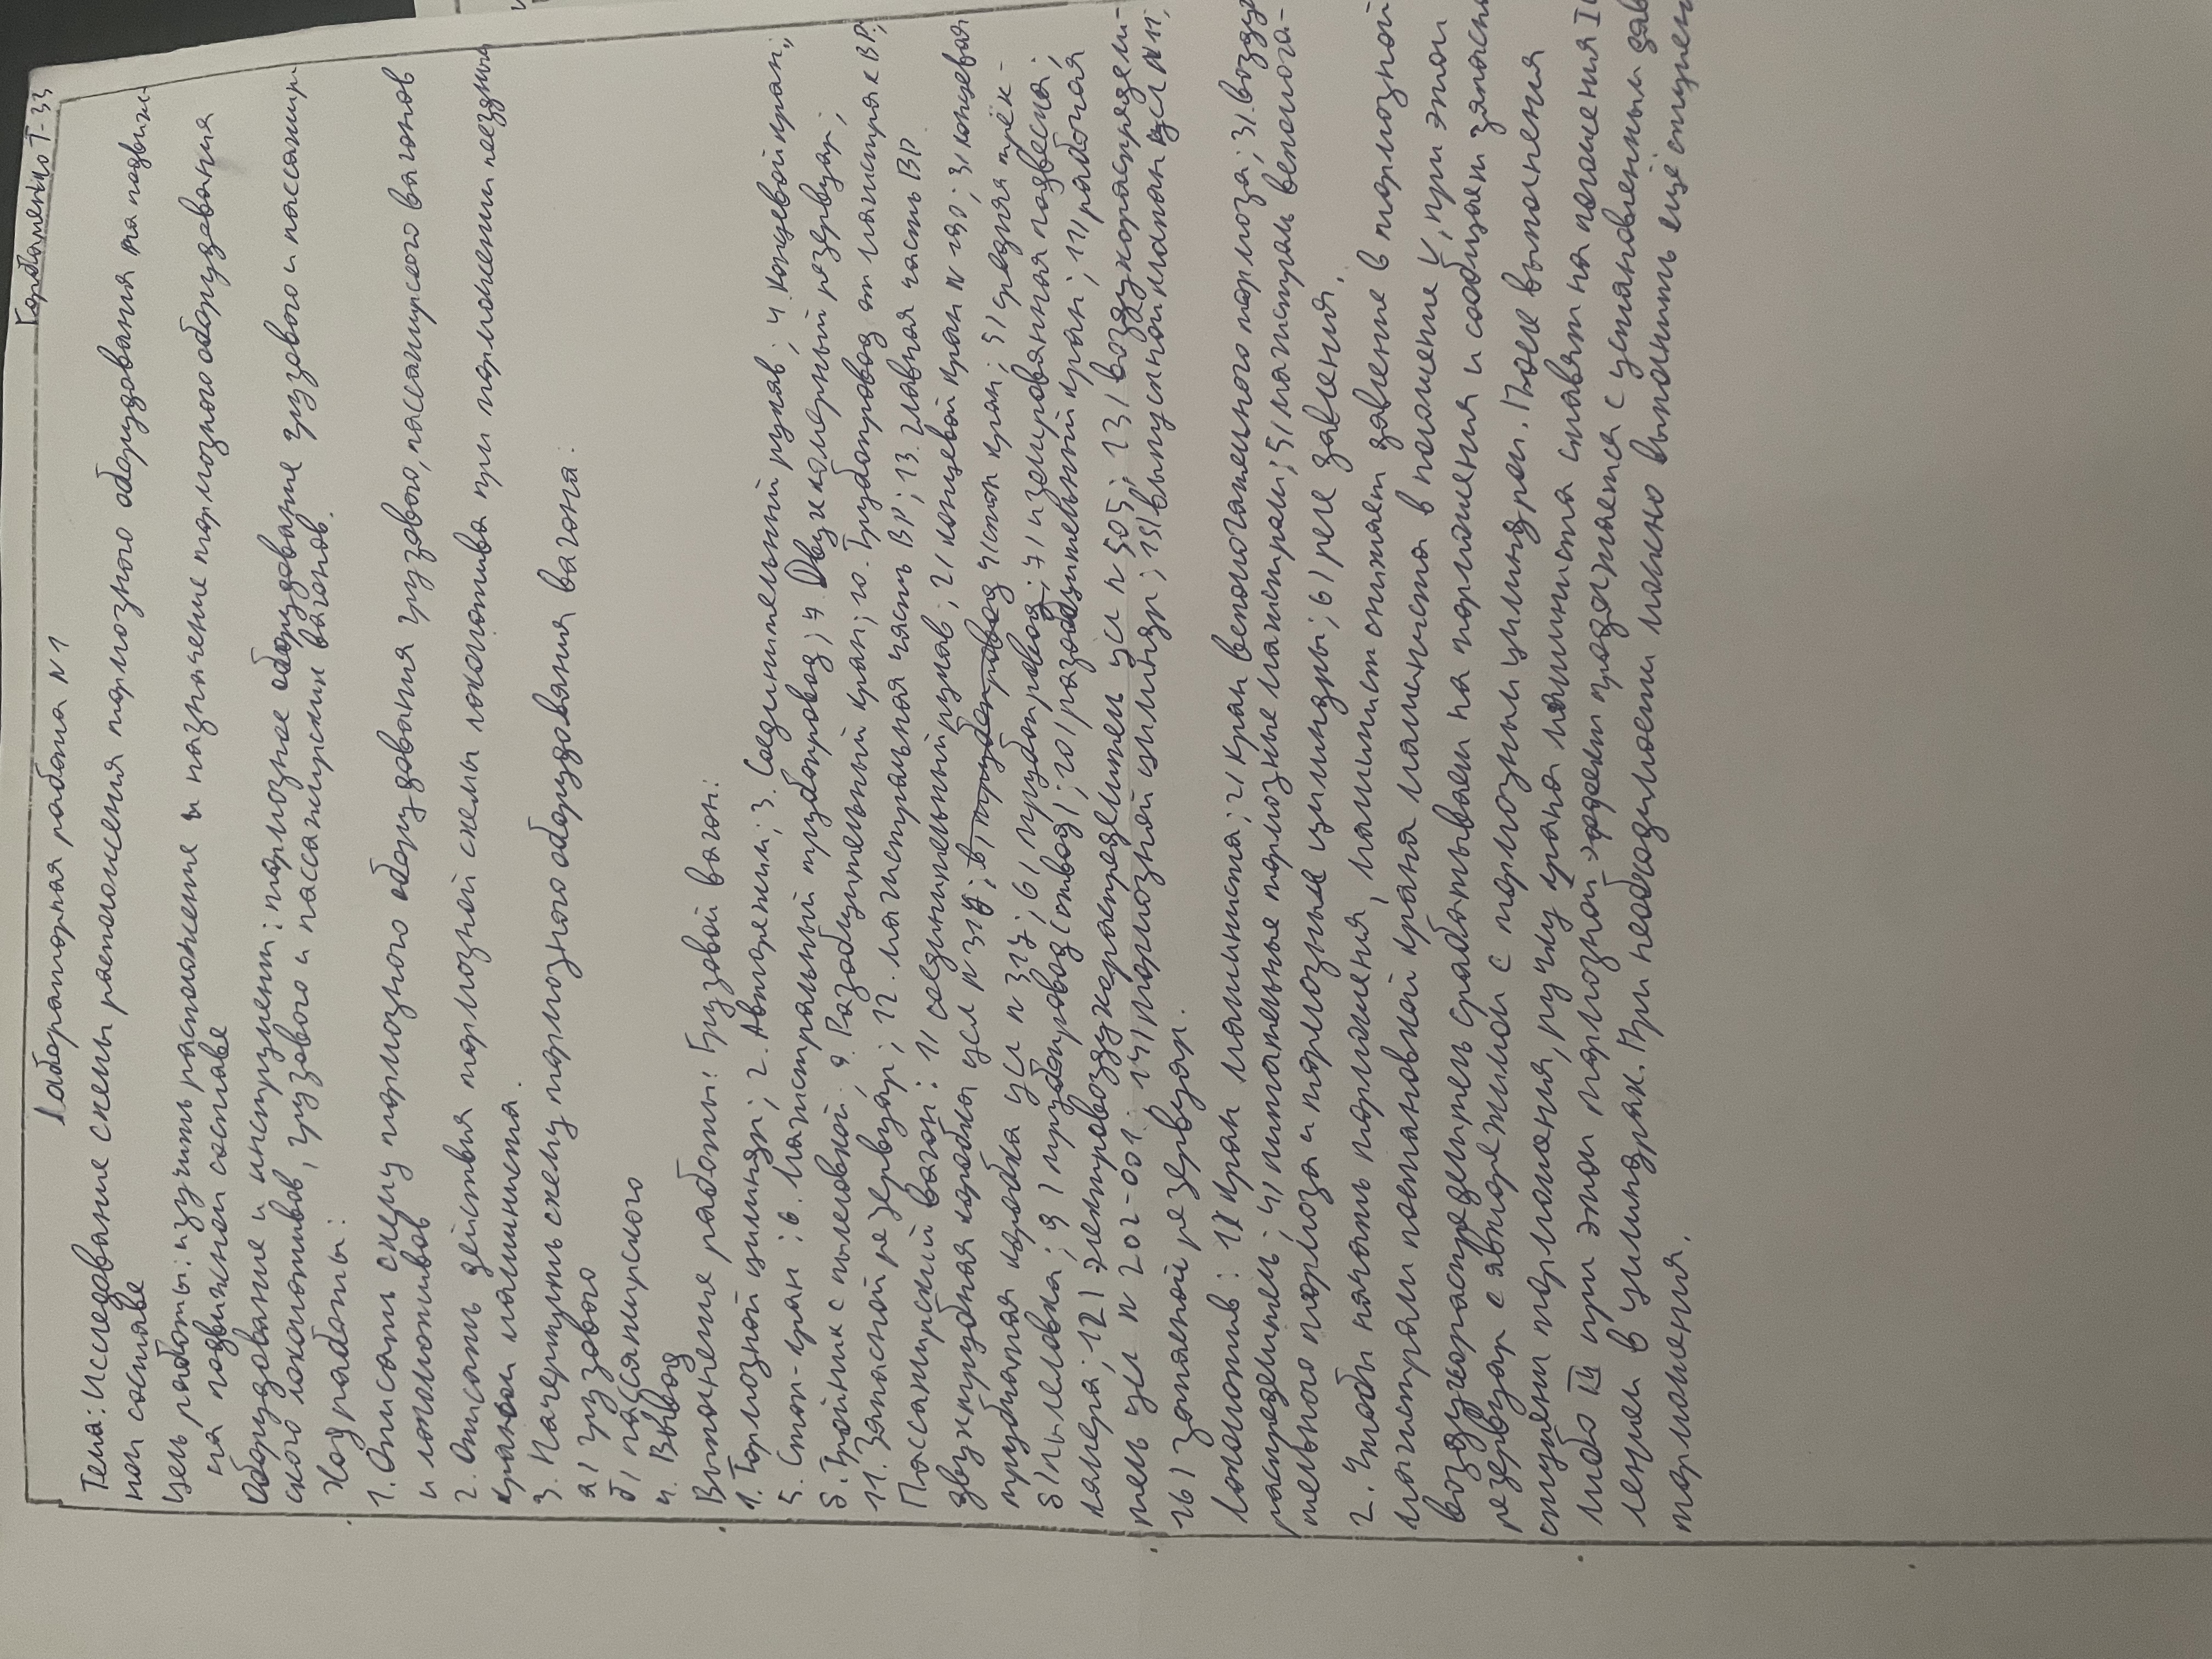 Горбаменко Т-33
Лабораторная работа N1
Тема: Исследование схемы расположения тормозного оборудования на подвиж-
ном составе
Цель работы: изучить расположение и назначение тормозного оборудования
на подвижном составе
Оборудование и инструмент: тормозное оборудование грузового и пассажир-
ского локомотивов, грузового и пассажирских вагонов.
Ход работы:
1. Описать схему тормозного оборудования грузового, пассажирского вагонов
и локомотивов
2. Описать действия тормозной схемы локомотива при торможении поездным
краном машиниста.
3. Начертить схему тормозного оборудования вагона:
а) грузового
б) пассажирского
4. Вывод
Выполнение работы: Грузовой вагон:
1. Тормозной цилиндр; 2. Авторежим; 3. Соединительный рукав; 4. Концевой кран;
5. Стоп-кран; 6. Магистральный трубопровод; 7. Двухкамерный резервуар;
8. Тройник с пылеловкой; 9. Разобщительный кран; 10. Трубопровод от магистрали к ВР;
11. Запасной резервуар; 12. Магистральная часть ВР; 13. Главная часть ВР.
Пассажирский вагон: 1) соединительный рукав; 2) концевой кран N 190; 3) концевая
двухтрубная коробка усл N 316; 4) стоп кран; 5) средняя трёх-
трубная коробка усл N 317; 6) трубопровод; 7) изолированная подвеска;
8) пылеловка; 9) трубопровод (отвод); 10) разобщительный кран; 11) рабочая
камера; 12) электровоздухораспределитель усл N 305; 13) воздухораспредели-
тель усл N 292-001; 14) тормозной цилиндр; 15) выпускной клапан усл N31;
16) запасной резервуар.
Локомотив: 1) кран машиниста; 2) кран вспомогательного тормоза; 3) воздухо
распределитель; 4) питательные тормозные магистрали; 5) магистраль вспомога-
тельного тормоза и тормозные цилиндры; 6) реле давления.
2. Чтобы начать торможения, машинист снижает давление в тормозной
магистрали постановкой крана машиниста в положение V, при этом
воздухораспределитель срабатывает на торможения и сообщает запасн
резервуар с авторежимом с тормозным цилиндром. После выполнения
ступени торможения, ручку крана машиниста ставят на положения IV
либо III при этом тормозной эффект продолжается с установленным дав
лением в цилиндрах. При необходимости можно выполнить ещё ступен
торможения.